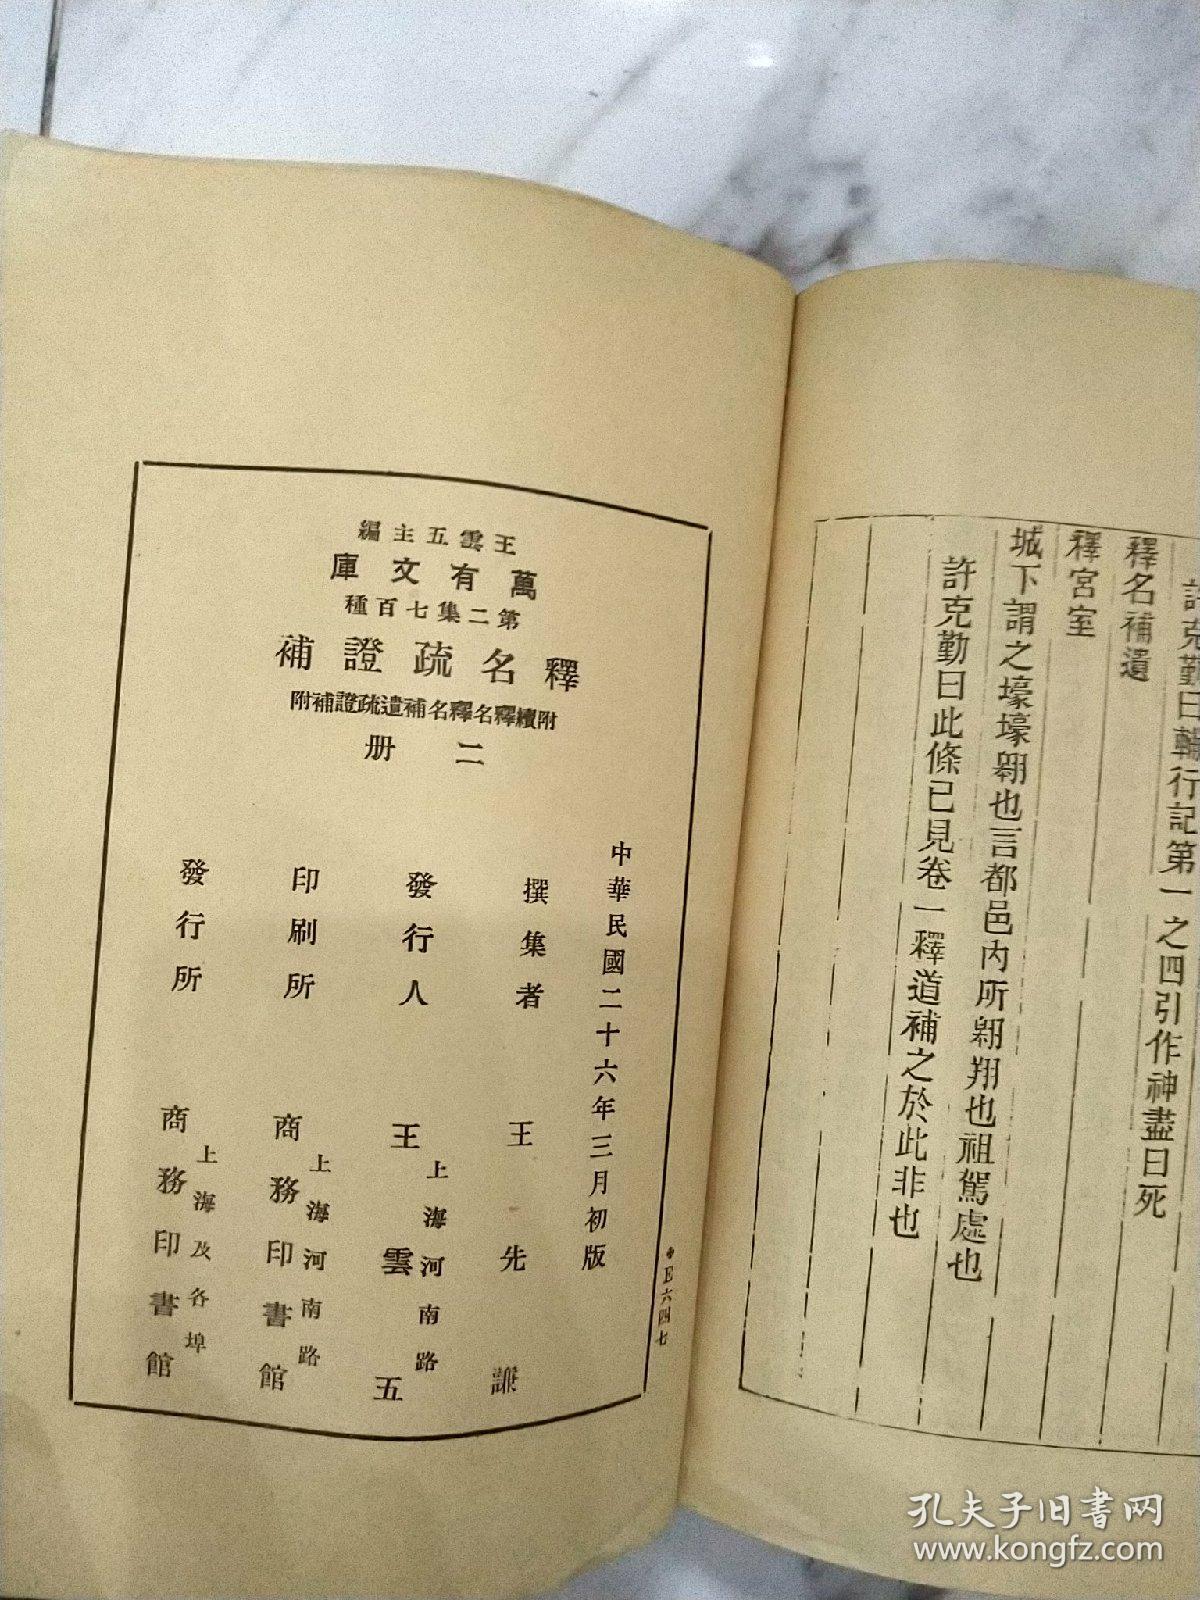 許克勤曰輔行記第一之四引作神盡曰死
釋名補遺
釋宮室
城下謂之壕壕翱也言都邑內所翱翔也祖駕處也
許克勤曰此條已見卷一釋道補之於此非也
王雲五主編
萬有文庫
第二集七百種
釋名疏證補
附續釋名釋名補遺疏證補附
二册
中華民國二十六年三月初版
撰集者 王先謙
發行人 王雲五
上海河南路
印刷所 商務印書館
上海河南路
發行所 商務印書館
上海及各埠
E六四七
孔夫子旧书网
www.kongfz.com